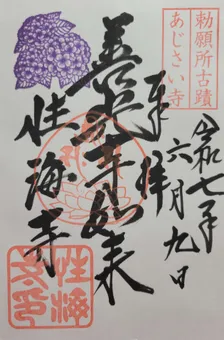 勅願所古蹟
あじさい寺
奉拝
令和七年
六月九日
善光寺如来
性海寺